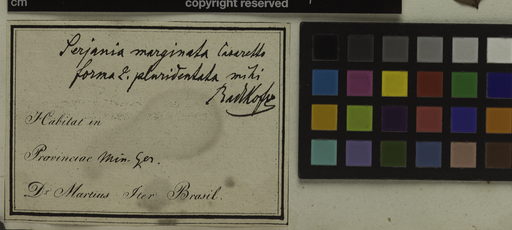 cm
copyright reserved
Serjania marginata Casaretto
forma 2. pluridentata mihi
Radlkofer
Habitat in
Provinciae Min. Ger.
Dr Martius Iter Brasil.